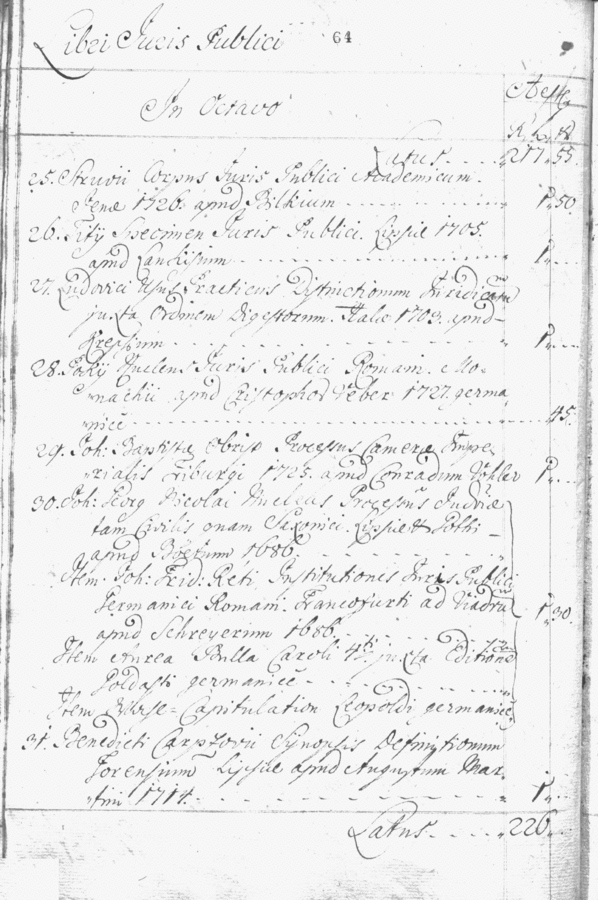 64
Libri Juris Publici
In Octavo
Latus. . . . . 217. 55.
25. Struvii Corpus Juris Publici Academicum.
Jenæ 1726. apud Bilkium - - - - 1. 50.
26. Titÿ Specimen Juris Publici. Lipsiæ 1705.
apud Lanckisium - - - - 1. - - -
27. Ludovici Usus Practicus Distinctionum Juridicarum
juxta Ordinem Digestorum. Halæ 1703. apud
- - - - 1. - - -
28. Nucleus Juris Publici Romani. Mo-
nachii apud Cristophor Veber 1727. germa-
nicè - - - - 45.
29. Joh: Baptistæ Obrist Processus Cameræ Impe-
rialis Friburgi 1725. apud Conradum 1. - - -
30. Joh: Georg Nicolai Nucleus Processus Judicii
tam Civilis quam Saxonici. Lipsiæ & Gothæ
apud Boetium 1686.
Item. Joh: Frid: Reti Institutiones Juris Publici
Germanici Romani. Francofurti ad Viadrum 1. 30.
apud Schreyerum 1686.
Item Aurea Bulla Caroli 4ti juxta Editionem
Goldasti germanicè - - - -
Item Capitulation Leopoldi germanicè.
31. Benedicti Carpzovii Synopsis Definitionum
Forensium Lipsiæ apud Augustum Mar-
tini 1714. - - - - 1. - -
Latus. - - - - 226.